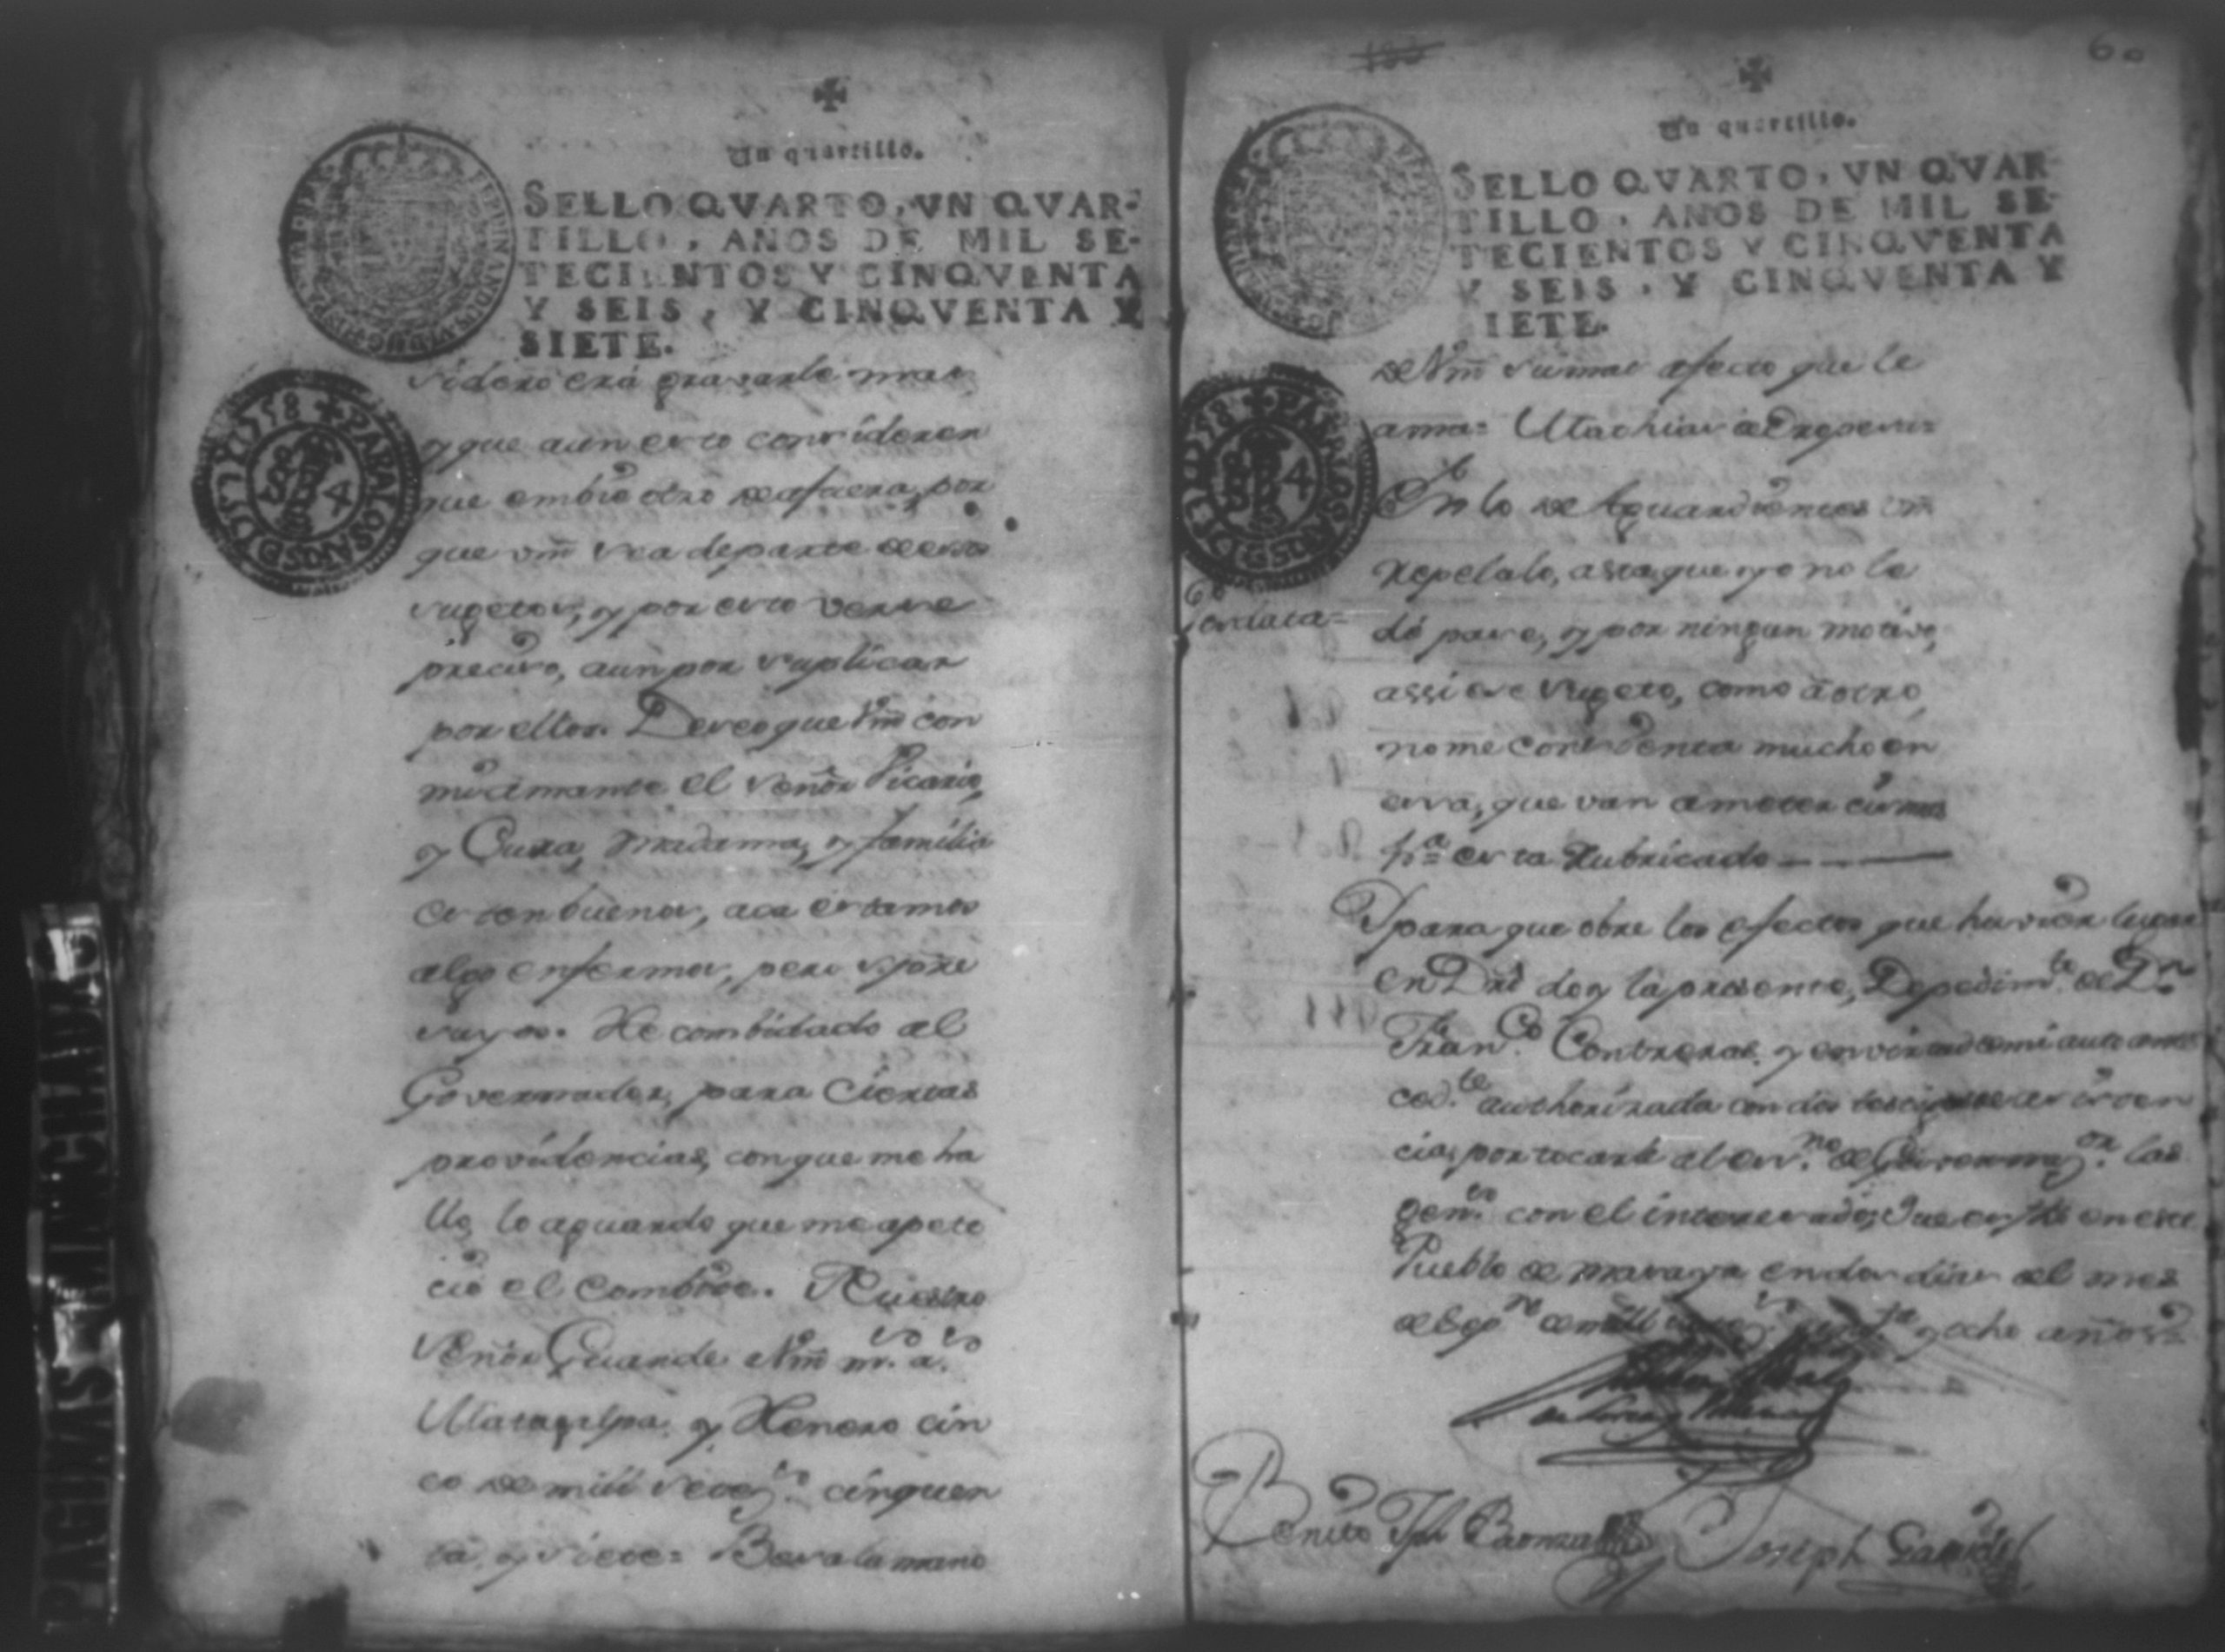 Un quartillo.
SELLO QVARTO, VN QVAR-
TILLO, AÑOS DE MIL SE-
TECIENTOS Y CINQVENTA
Y SEIS, Y CINQVENTA Y
SIETE.
PARA LOS AÑOS D 1757 Y 1758
videro será gravarle mas
y que aun esto consideren
que embio otro de afuera, por
que vm̃ sea de parte de esos
sugetos, y por esto verse
preciso, aun por suplicar
por ellos. Deseo que Vm̃ con
mi amante el señor Vicario,
y Cura, madama, y familia
esten buenos, aca estamos
algo enfermos, pero spre
suyos. He combidado al
Governador, para ciertas
providencias, con que me ha
llo, lo aguardo que me apete
ció el combite. Nuestro
Señor Guarde Vm̃ ms. as.
Matagalpa, y Henero cin
co de mill setecs. cinquen
ta, y siete= Besa la mano
60
Un quartillo.
SELLO QVARTO, VN QVAR-
TILLO, AÑOS DE MIL SE-
TECIENTOS Y CINQVENTA
Y SEIS, Y CINQVENTA Y
IETE.
de Vm̃ su mas afecto que le
ama=
En lo de Aguardientes vm̃
repelalo, asta que yo no le
dé pase, y por ningun motivo,
assi ese sugeto, como á otro,
no me contenta mucho en
esva, que van a meter
pa. esta Rubricado
Y para que obre los efectos que huvier lugar
en Dro doy la presente, De pedimto. de Dn.
Franco. Contreras, y en virtud de mi auto
cedte. authorizada con dos testigos de asisten
cia, por tocarle al esno. de Governazon. las
gents. con el interesado; Que es fho en este
Pueblo de masaya en dos dias del mes
de Sepre de mill y ocho años=
Benito Jph
Joseph